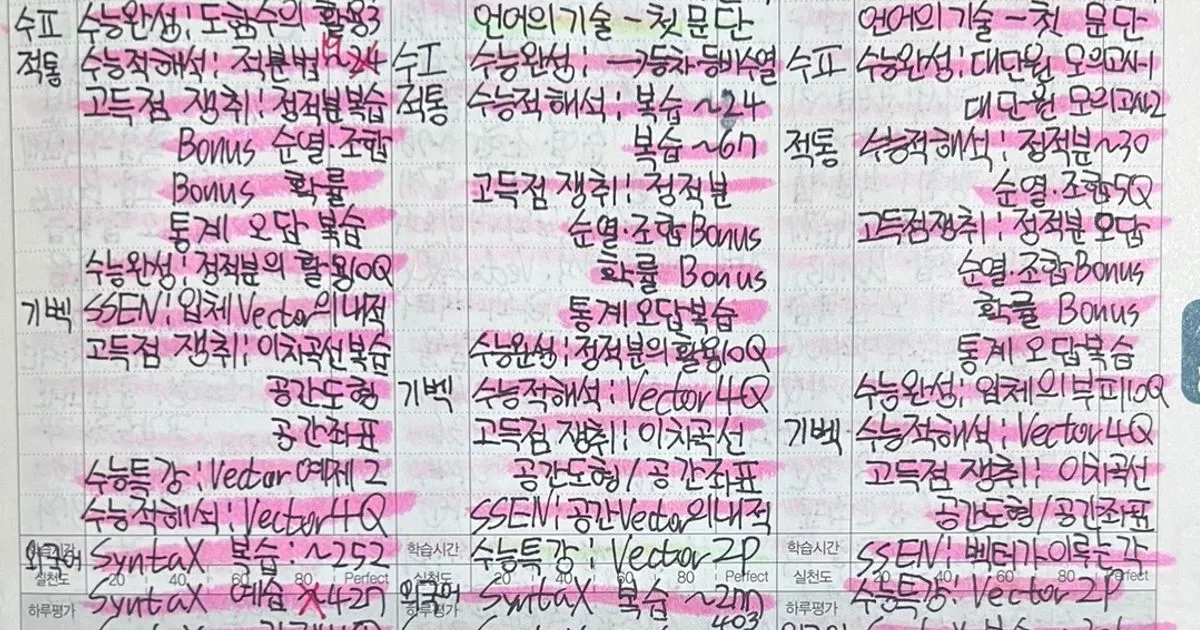 수I 수능완성; 도함수의 활용3
적통 수능적해석; 적분법
고득점 쟁취; 정적분복습
Bonus 순열·조합
Bonus 확률
통계 오답 복습
수능완성; 정적분의 활용10Q
기벡 SSEN; 입체Vector의내적
고득점 쟁취; 이차곡선복습
공간도형
공간좌표
수능특강; Vector 예제 2
수능적해석; Vector4Q
외국어 SyntaX 복습: ~252
실천도 20 40 60 80 Perfect
SyntaX 예습
언어의 기술 - 첫 문단
수I 수능완성; → 등차·등비수열
적통 수능적해석; 복습 ~24
복습 ~67
고득점 쟁취; 정적분
순열·조합 Bonus
확률 Bonus
통계오답복습
수능완성; 정적분의 활용10Q
기벡 수능적해석; Vector4Q
고득점 쟁취; 이차곡선
공간도형/공간좌표
SSEN; 공간Vector의내적
학습시간 수능특강; Vector 2P
실천도 20 40 60 80 Perfect
외국어 SyntaX 복습
하루평가
언어의 기술 - 첫 문단
수I 수능완성; 대단원 모의고사1
대단원 모의고사2
적통 수능적해석; 정적분~30
순열·조합5Q
고득점쟁취; 정적분 오답
순열·조합Bonus
확률 Bonus
통계오답복습
수능완성; 입체의부피10Q
기벡 수능적해석; Vector4Q
고득점 쟁취; 이차곡선
공간도형/공간좌표
학습시간 SSEN; 벡터가이루는각
실천도 20 40 60 80 Perfect
수능특강; Vector 2P
하루평가